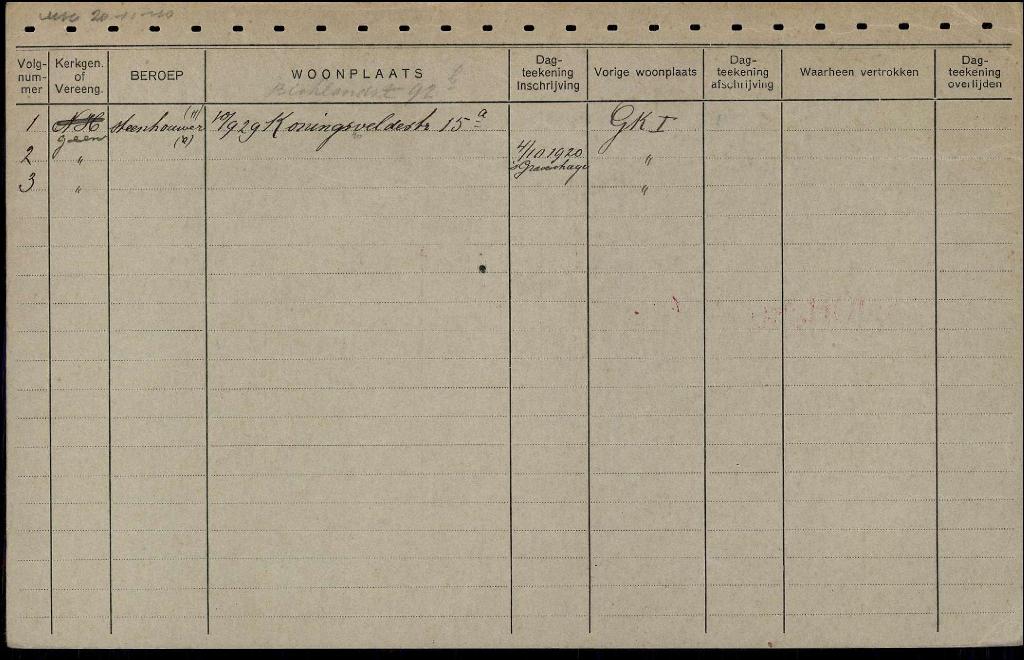 20-11-40
Volg-
num-
mer
Kerkgen.
of
Vereeng.
BEROEP
WOONPLAATS
Dag-
teekening
Inschrijving
Vorige woonplaats
Dag-
teekening
afschrijving
Waarheen vertrokken
Dag-
teekening
overlijden
92 b
1 N.H. steenhouwer 10/9 29 Koningsveldestr 15 a GK I
geen
2 " 4/10.1920 "
's Gravenhage
3 " "